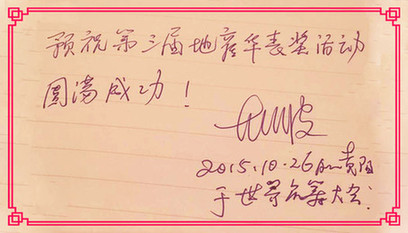 预祝第三届地产华表奖活动
圆满成功！
2015.10.26日 贵阳
于世界众筹大会.